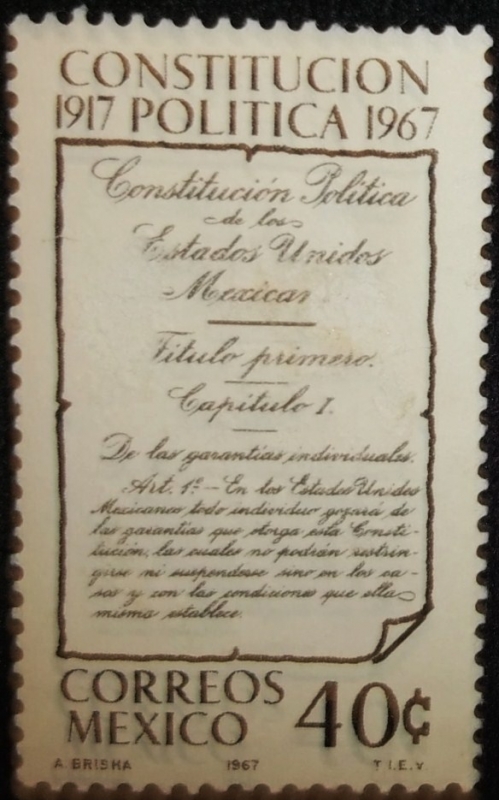 CONSTITUCION
1917 POLITICA 1967
Constitución Política
de los
Estados Unidos
Mexican
Título primero.
Capítulo I.
De las garantías individuales.
Art. 1º - En los Estados Unidos
Mexicanos todo individuo gozará de
las garantías que otorga esta Consti-
tución, las cuales no podrán restrin-
girse ni suspenderse sino en los ca-
sos y con las condiciones que ella
misma establece.
CORREOS
MEXICO 40¢
A. BRISHA 1967 T.I.E.V.